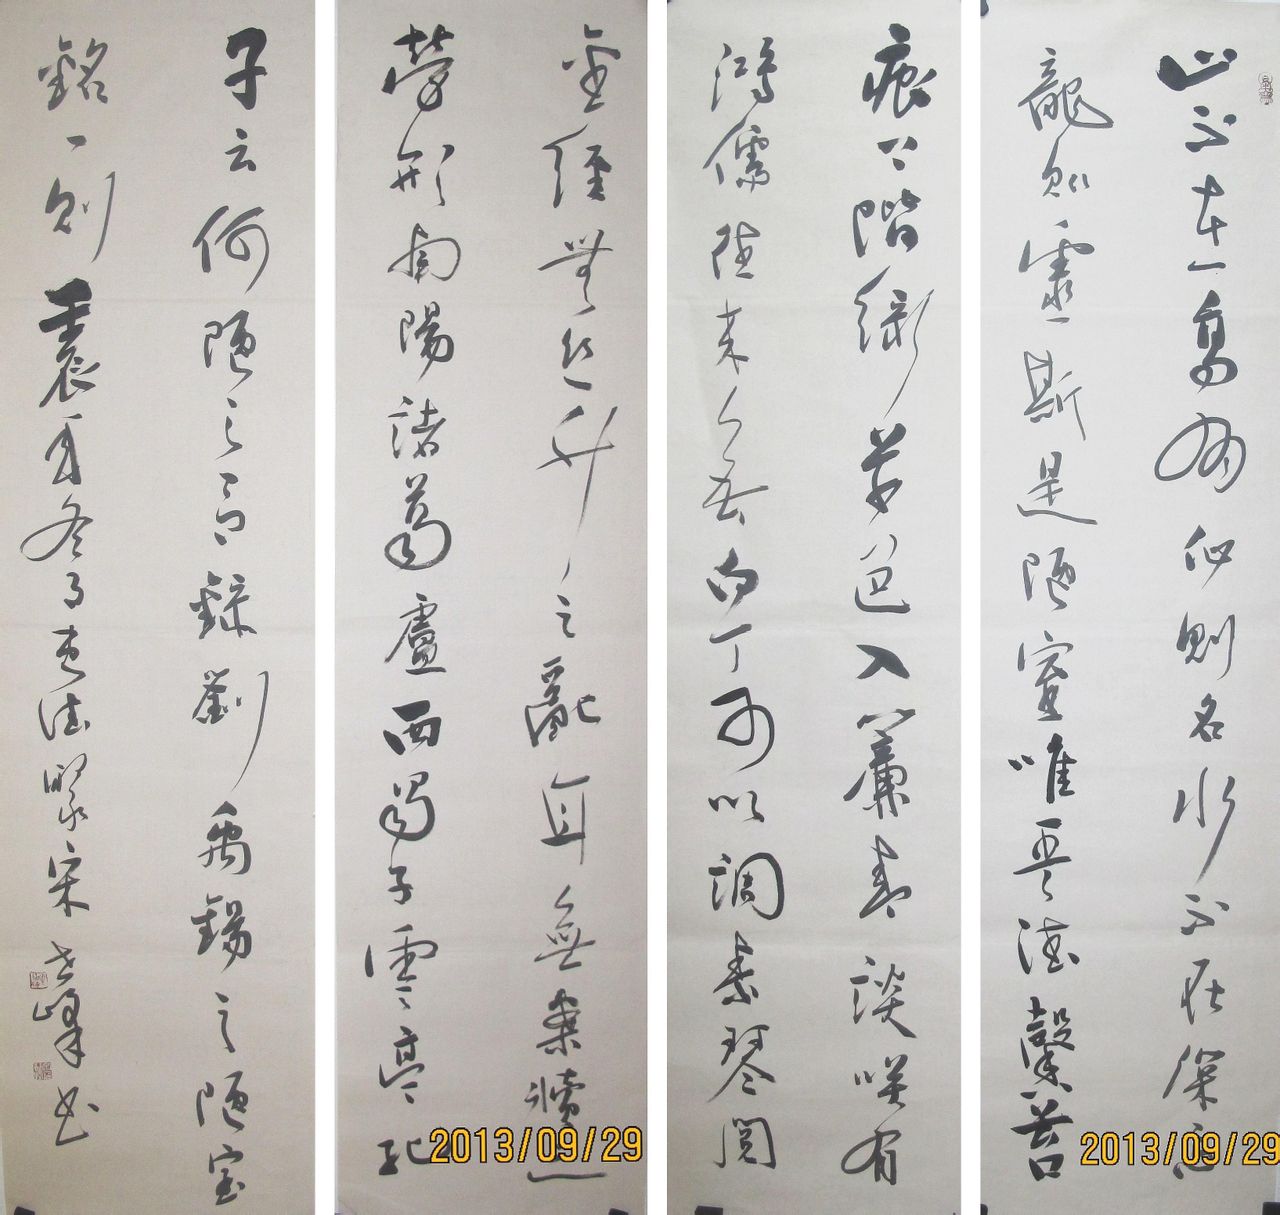 山不在高有仙則名水不在深有
龍則靈斯是陋室唯吾德馨苔
痕上階綠草色入簾青談笑有
鴻儒往来無白丁可以調素琴閱
金經無絲竹之亂耳無案牘之
勞形南陽諸葛廬西蜀子雲亭孔
子云何陋之有錄劉禹錫之陋室
銘一則壬辰年冬月宋峰书
2013/09/29
2013/09/29